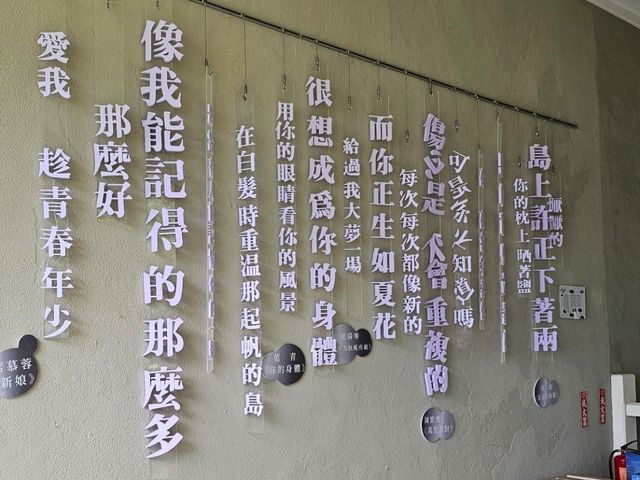 島上許正下著雨
你的枕上晒著鹽
傷心是不會重複的
每次每次都像新的
而你正生如夏花
給過我大夢一場
很想成爲你的身體
用你的眼睛看你的風景
葉青
《你的身體》
在白髮時重温那起帆的島
像我能記得的那麼多
那麼好
愛我 趁青春年少
慕蓉
新娘》